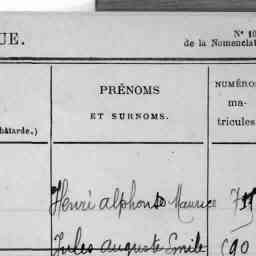 UE.
N° 10
de la Nomenclat
PRÉNOMS
ET SURNOMS.
NUMÉROS
ma-
tricules
bâtarde.)
Henri Alphonse Maurice
Jules Auguste Emile 690